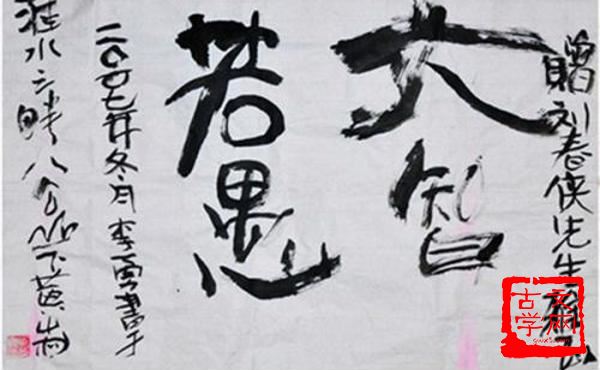 赠刘春侠先生
大智
若愚
二〇〇七年冬月李勇書于
淮水之畔八公山下
古文学网